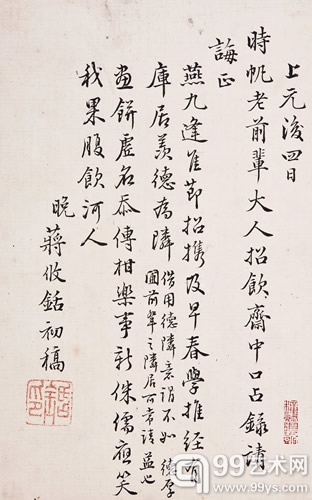 上元後四日
時帆老前輩大人招飲齋中口占錄請
誨正
燕九逢佳節招攜及早春學推經有
庫居羨德為隣
借用德隣意謂不如德厚
圃前輩之隣居可常請益也
畫餅虛名忝傳柑樂事新侏儒應笑
我果腹飲河人
晚蔣攸銛初稿
99艺术网
www.99ys.com